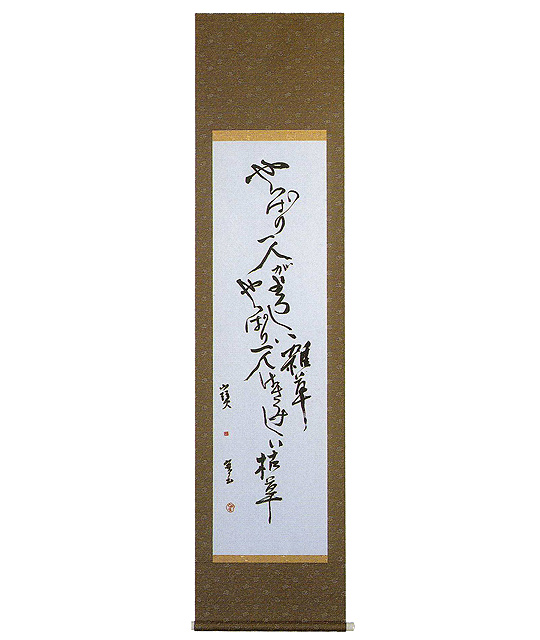 やつぱり一人がよろしい雑草
やつぱり一人はさみしい枯草
山頭火